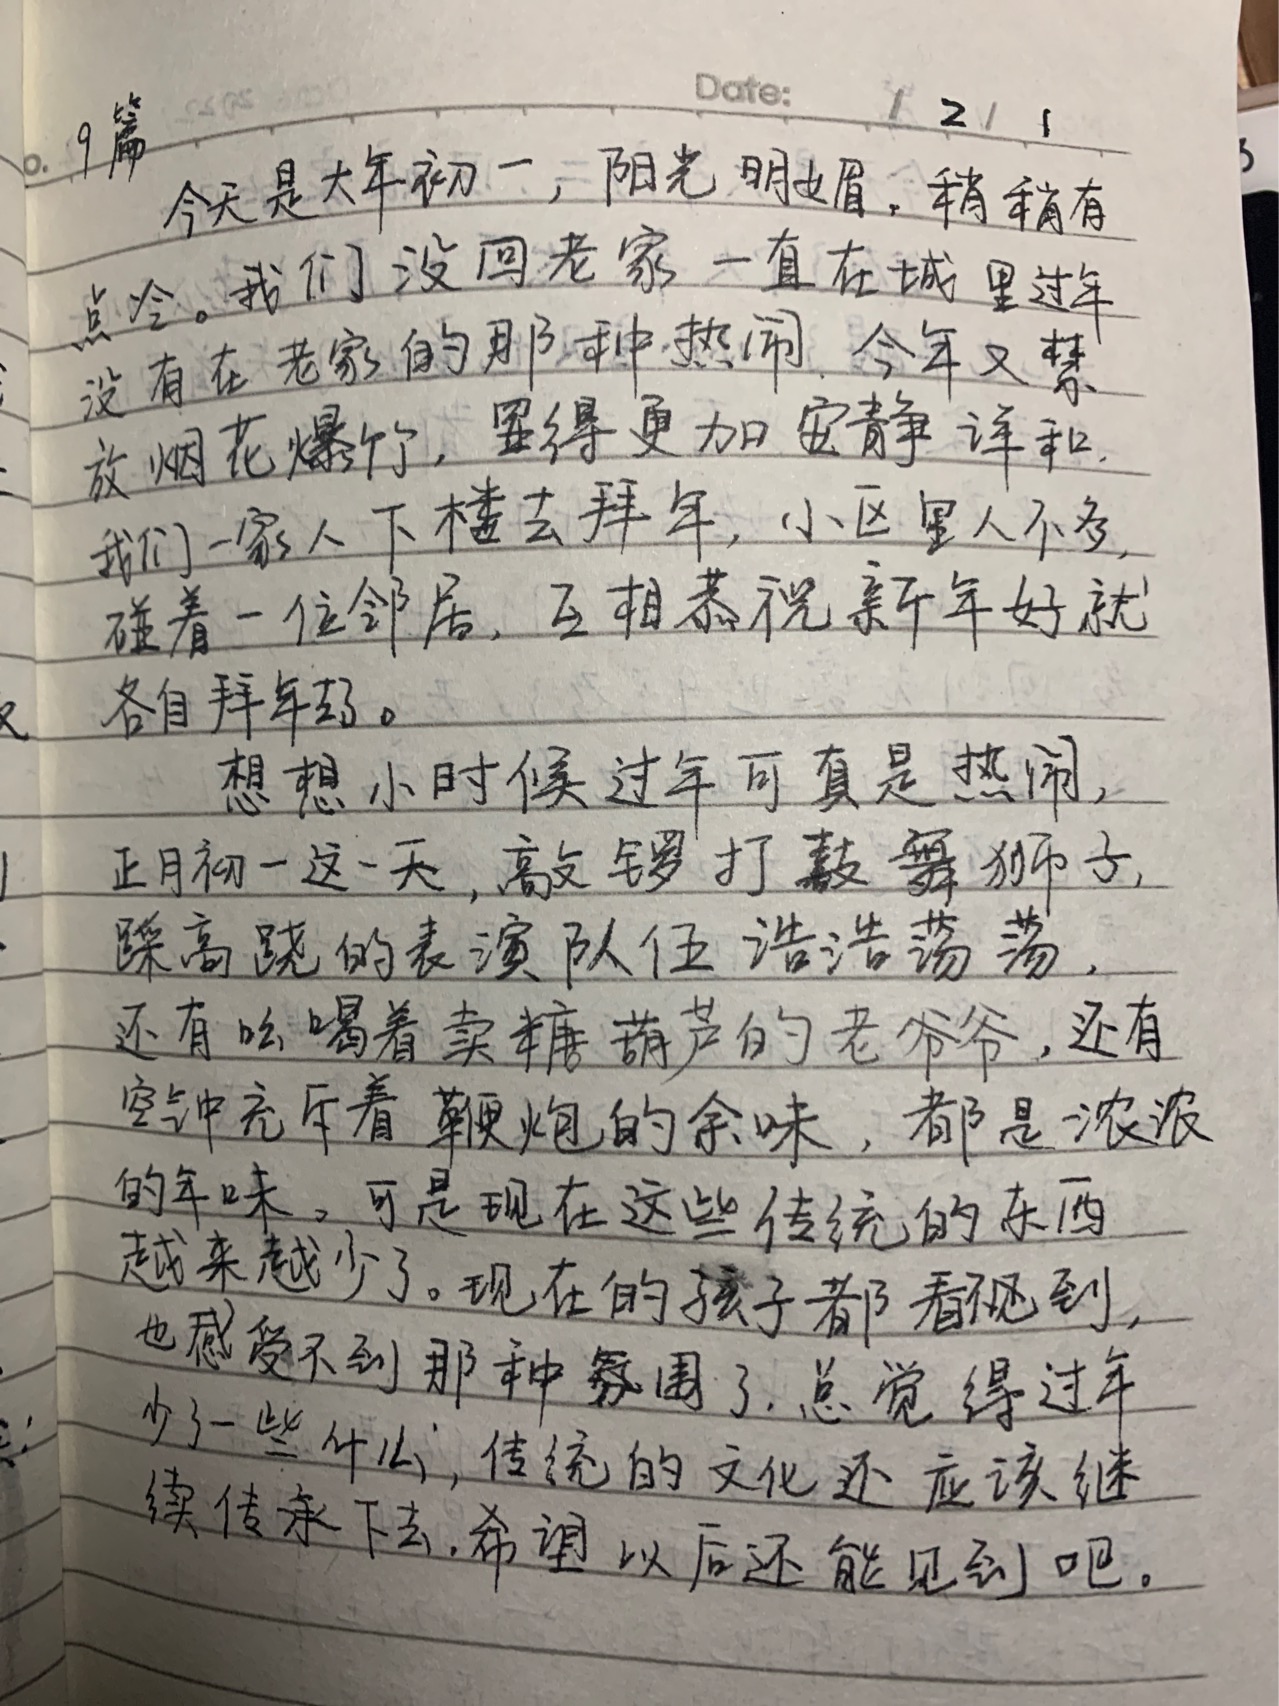 Date: / 2 / 1
o. 9篇
今天是大年初一，阳光明媚，稍稍有
点冷。我们没回老家一直在城里过年
没有在老家的那种热闹.今年又禁
放烟花爆竹，显得更加安静详和.
我们一家人下楼去拜年，小区里人不多,
碰着一位邻居，互相恭祝新年好就
各自拜年去了。
想想小时候过年可真是热闹，
正月初一这一天，敲锣打鼓舞狮子,
踩高跷的表演队伍浩浩荡荡，
还有吆喝着卖糖葫芦的老爷爷，还有
空钟充斥着鞭炮的余味，都是浓浓
的年味。可是现在这些传统的东西
越来越少了。现在的孩子都看不见到，
也感受不到那种氛围了.总觉得过年
少了一些什么，传统的文化还应该继
续传承下去.希望以后还能见到吧。